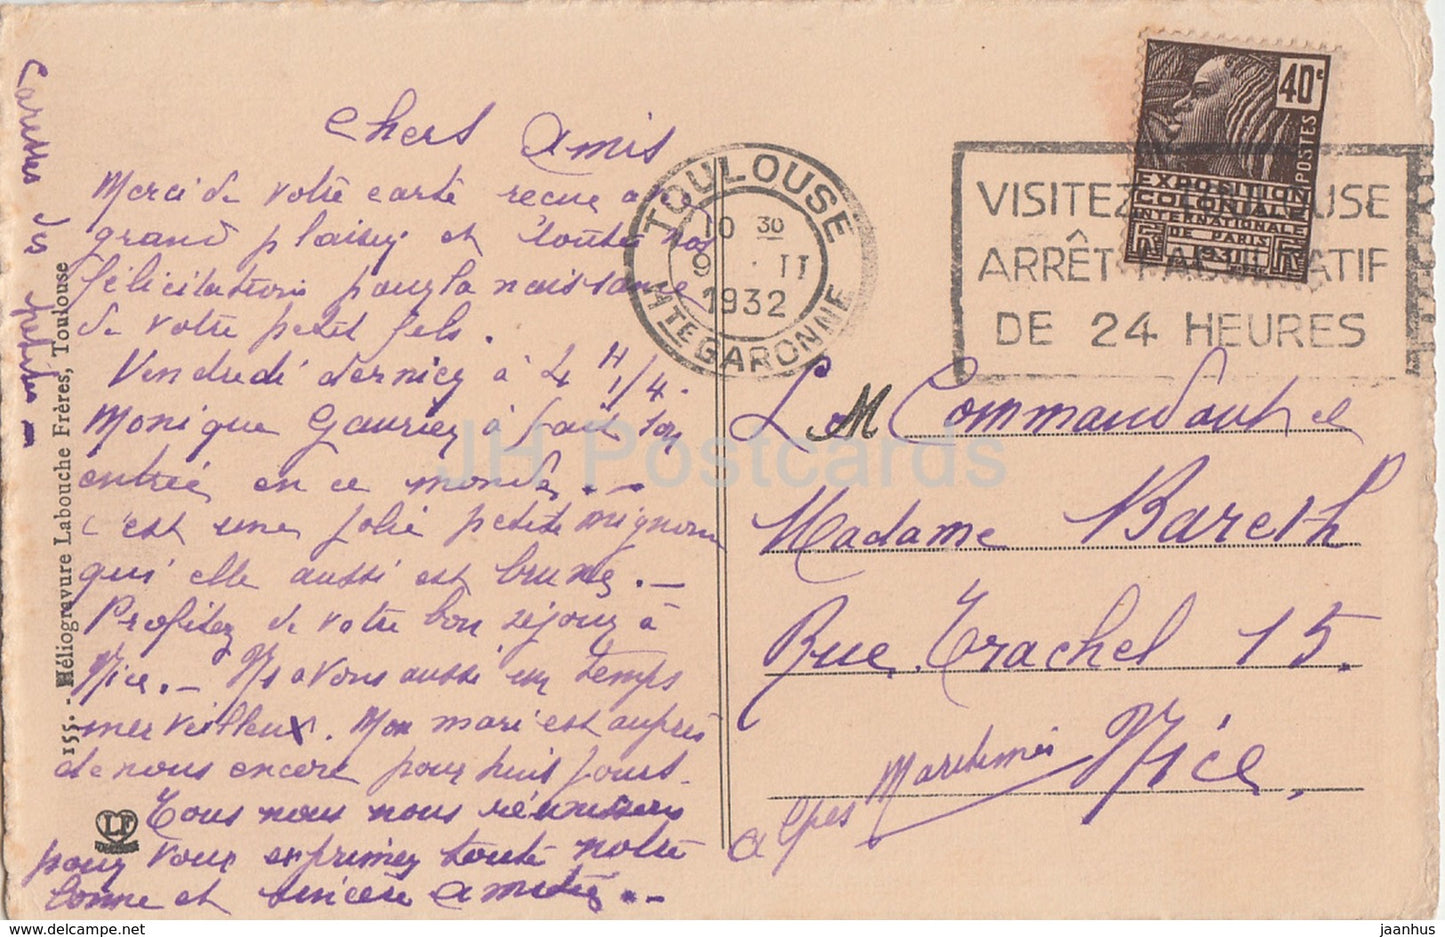 Chers Amis
Merci de votre carte recue avec
grand plaisir et toutes nos
félicitations pour la naissance
de votre petit fils.
Vendredi dernier à 4 H 1/4.
Monique Gaurier à fait son
entrée en ce monde. —
c'est une jolie petite mignonne
qui elle aussi est brune. —
Profitez de votre bon séjour à
Nice. — Ns avons aussi un temps
merveilleux. Mon mari est auprès
de nous encore pour huit jours.
Tous nous nous réunissons
pour vous exprimer toute notre
bonne et sincère amitié. —
Caresses des
155. - Héliogravure Labouche Frères, Toulouse
LF
TOULOUSE
10 30
9 · II
1932
HTE GARONNE
VISITEZ TOULOUSE
ARRÊT FACULTATIF
DE 24 HEURES
40c
POSTES
EXPOSITION
COLONIALE
INTERNATIONALE
DE PARIS
1931
RF
Le M Commandant et
Madame Bareth
Rue Trachel 15.
Nice,
Alpes Maritimes
JH Postcards
delcampe.net
jaanhus